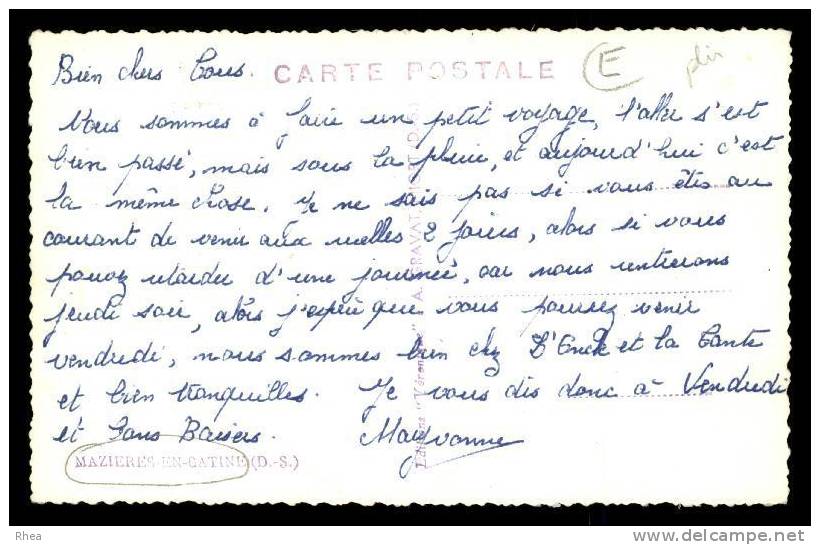 Bien chers Tous. CARTE POSTALE E plis
Nous sommes à faire un petit voyage, l'aller s'est
bien passé, mais sous la pluie, et aujourd'hui c'est
la même chose. Je ne sais pas si vous êtes au
courant de venir aux 2 jours, alors si vous
pouvez retarder d'une journée, car nous rentrerons
jeudi soir, alors j'espère que vous pourrez venir
vendredi, nous sommes bien chez L'Oncle et la Tante
et bien tranquilles. Je vous dis donc à Vendredi
et Bons Baisers. Mayvonne
MAZIERES-EN-GATINE (D.-S.)
Editions
Rhea
delcampe.net